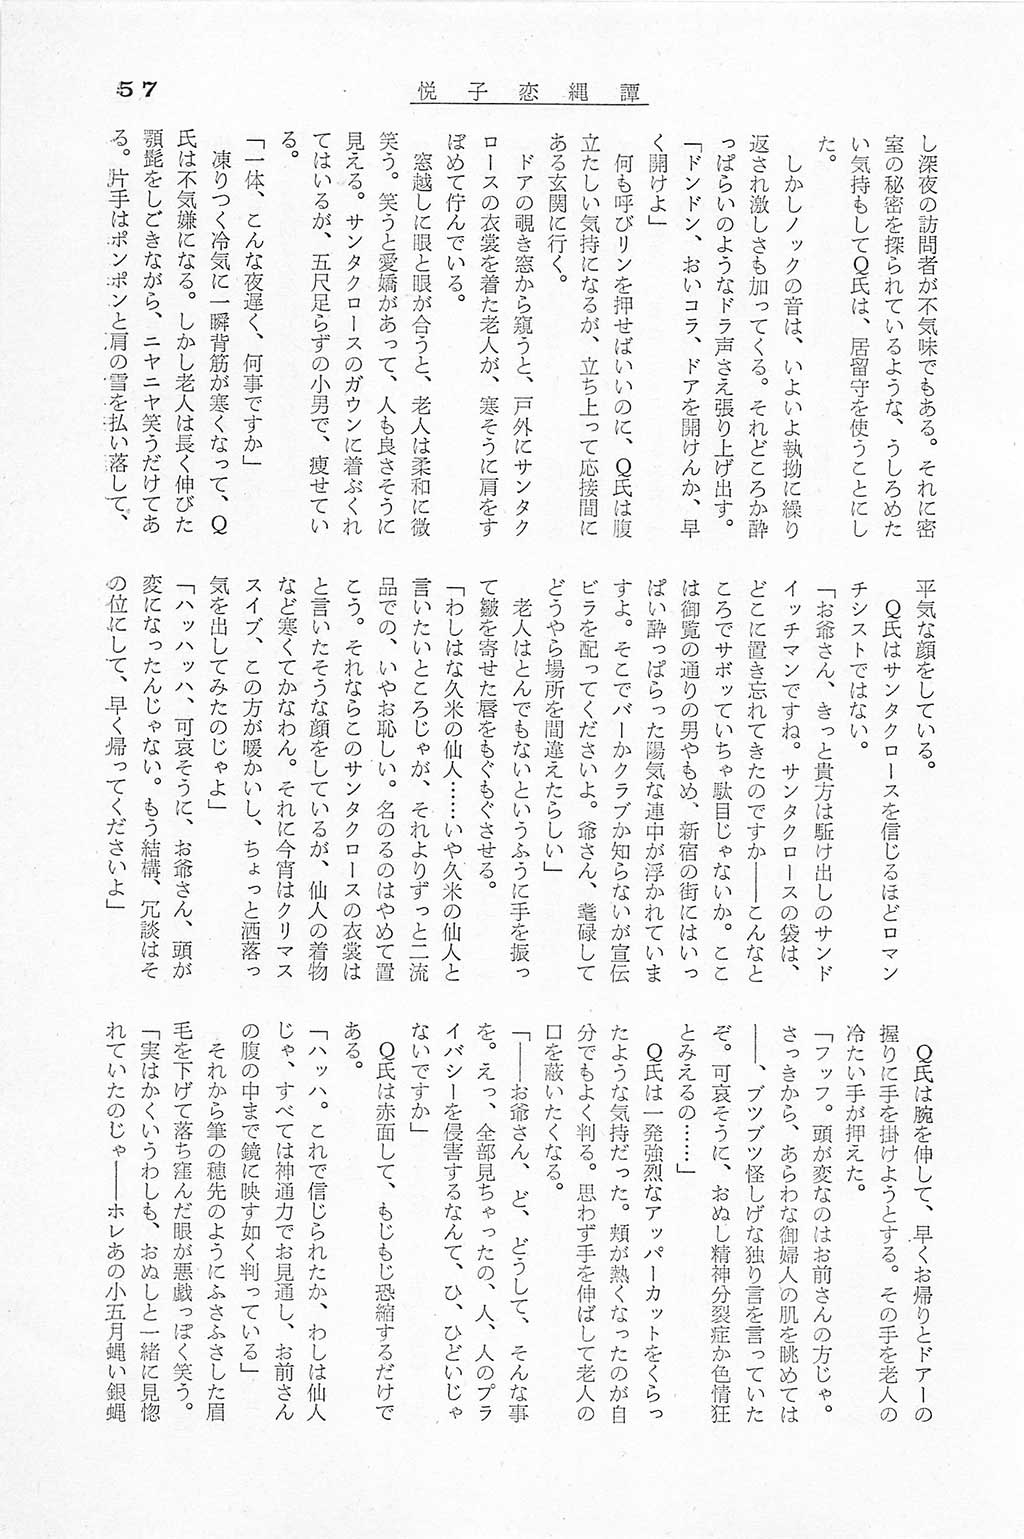 57
悦子恋縄譚
し深夜の訪問者が不気味でもある。それに密
室の秘密を探られているような、うしろめた
い気持もしてＱ氏は、居留守を使うことにし
た。
しかしノックの音は、いよいよ執拗に繰り
返され激しさも加ってくる。それどころか酔
っぱらいのようなドラ声さえ張り上げ出す。
「ドンドン、おいコラ、ドアを開けんか、早
く開けよ」
何も呼びリンを押せばいいのに、Ｑ氏は腹
立たしい気持になるが、立ち上って応接間に
ある玄関に行く。
ドアの覗き窓から窺うと、戸外にサンタク
ロースの衣裳を着た老人が、寒そうに肩をす
ぼめて佇んでいる。
窓越しに眼と眼が合うと、老人は柔和に微
笑う。笑うと愛嬌があって、人も良さそうに
見える。サンタクロースのガウンに着ぶくれ
てはいるが、五尺足らずの小男で、痩せてい
る。
「一体、こんな夜遅く、何事ですか」
凍りつく冷気に一瞬背筋が寒くなって、Ｑ
氏は不気嫌になる。しかし老人は長く伸びた
顎髭をしごきながら、ニヤニヤ笑うだけであ
る。片手はポンポンと肩の雪を払い落して、
平気な顔をしている。
Ｑ氏はサンタクロースを信じるほどロマン
チシストではない。
「お爺さん、きっと貴方は駈け出しのサンド
イッチマンですね。サンタクロースの袋は、
どこに置き忘れてきたのですか――こんなと
ころでサボッていちゃ駄目じゃないか。ここ
は御覧の通りの男やもめ、新宿の街にはいっ
ぱい酔っぱらった陽気な連中が浮かれていま
すよ。そこでバーかクラブか知らないが宣伝
ビラを配ってくださいよ。爺さん、耄碌して
どうやら場所を間違えたらしい」
老人はとんでもないというふうに手を振っ
て皺を寄せた唇をもぐもぐさせる。
「わしはな久米の仙人……いや久米の仙人と
言いたいところじゃが、それよりずっと二流
品での、いやお恥しい。名のるのはやめて置
こう。それならこのサンタクロースの衣裳は
と言いたそうな顔をしているが、仙人の着物
など寒くてかなわん。それに今宵はクリマス
スイブ、この方が暖かいし、ちょっと洒落っ
気を出してみたのじゃよ」
「ハッハッハ、可哀そうに、お爺さん、頭が
変になったんじゃない。もう結構、冗談はそ
の位にして、早く帰ってくださいよ」
Ｑ氏は腕を伸して、早くお帰りとドアーの
握りに手を掛けようとする。その手を老人の
冷たい手が押えた。
「フッフ。頭が変なのはお前さんの方じゃ。
さっきから、あらわな御婦人の肌を眺めては
――、ブツブツ怪しげな独り言を言っていた
ぞ。可哀そうに、おぬし精神分裂症か色情狂
とみえるの……」
Ｑ氏は一発強烈なアッパーカットをくらっ
たような気持だった。頬が熱くなったのが自
分でもよく判る。思わず手を伸ばして老人の
口を蔽いたくなる。
「――お爺さん、ど、どうして、そんな事
を。えっ、全部見ちゃったの、人、人のプラ
イバシーを侵害するなんて、ひ、ひどいじゃ
ないですか」
Ｑ氏は赤面して、もじもじ恐縮するだけで
ある。
「ハッハ。これで信じられたか、わしは仙人
じゃ、すべては神通力でお見通し、お前さん
の腹の中まで鏡に映す如く判っている」
それから筆の穂先のようにふさふさした眉
毛を下げて落ち窪んだ眼が悪戯っぽく笑う。
「実はかくいうわしも、おぬしと一緒に見惚
れていたのじゃ――ホレあの小五月蝿い銀蝿